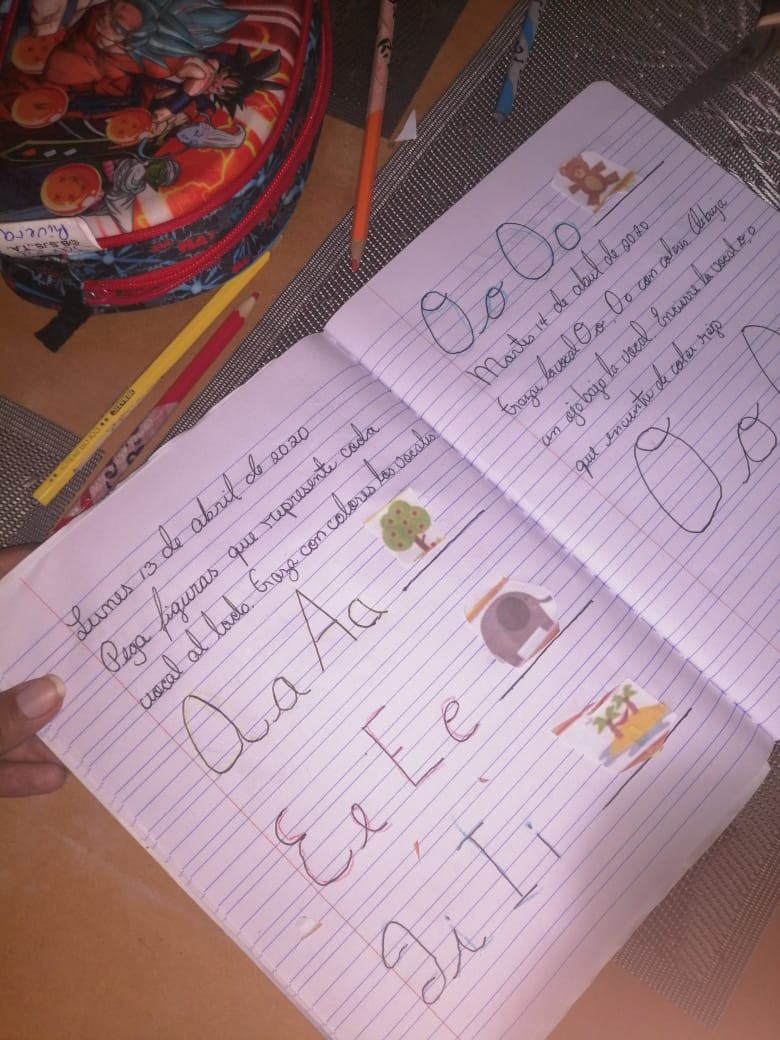 Lunes 13 de abril de 2020
Pega figuras que represente cada
vocal al lado. Traza con colores las vocales
A a A a
E e E e
I i I i
O o O o
Martes 14 de abril de 2020
Traza la vocal O o, O o con colores dibuja
un ojo bajo la vocal Encierre la vocal o, o
que encuentre de color rojo
O o
Rivera